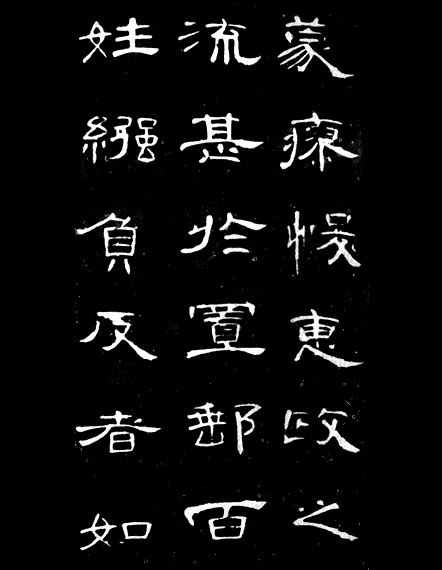 蒙瘳悮惠政之
流甚於置郵百
姓繦負反者如